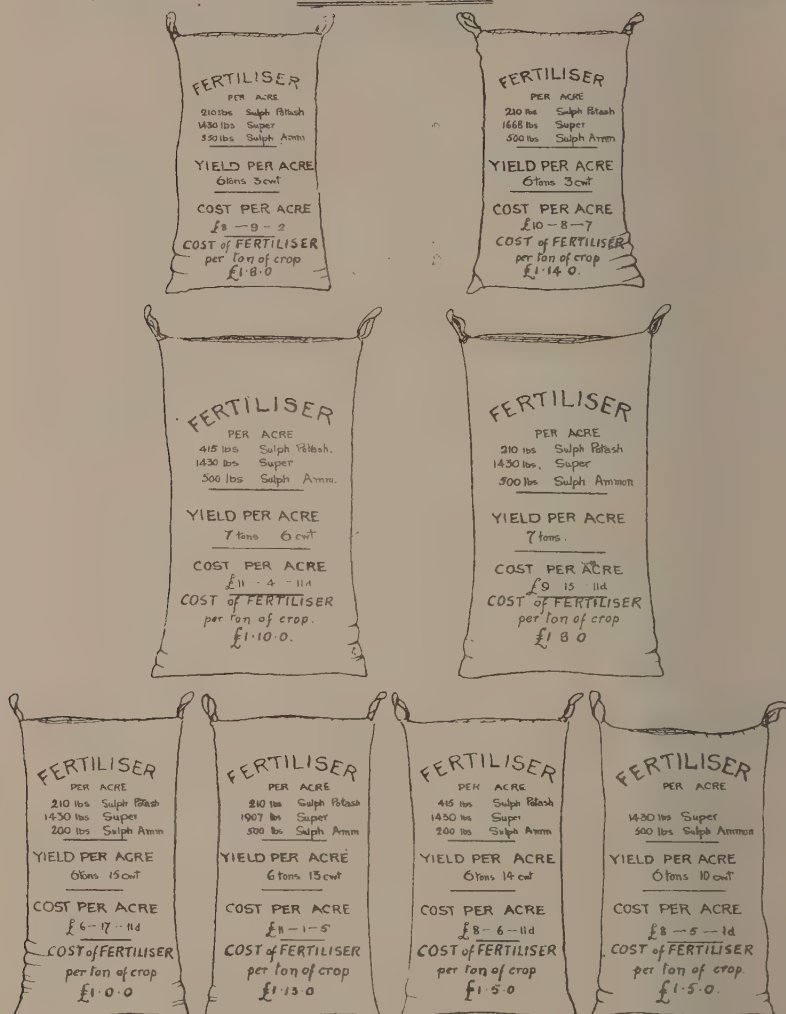 FERTILISER
PER ACRE
210 lbs Sulph Potash
1430 lbs Super
350 lbs Sulph Amm
YIELD PER ACRE
6 tons 3 cwt
COST PER ACRE
£8 - 9 - 2
COST of FERTILISER
per ton of crop
£1·8·0
FERTILISER
PER ACRE
210 lbs Sulph Potash
1668 lbs Super
500 lbs Sulph Amm
YIELD PER ACRE
6 tons 3 cwt
COST PER ACRE
£10 - 8 - 7
COST of FERTILISER
per ton of crop
£1·14 0.
FERTILISER
PER ACRE
415 lbs Sulph Potash.
1430 lbs Super
500 lbs Sulph Amm.
YIELD PER ACRE
7 tons 6 cwt
COST PER ACRE
£11 - 4 - 11d
COST of FERTILISER
per ton of crop.
£1·10·0.
FERTILISER
PER ACRE
210 lbs Sulph Potash
1430 lbs. Super
500 lbs Sulph Ammon
YIELD PER ACRE
7 tons.
COST PER ACRE
£9 15 11d
COST of FERTILISER
per ton of crop
£1 8 0
FERTILISER
PER ACRE
210 lbs Sulph Potash
1430 lbs Super
200 lbs Sulph Amm
YIELD PER ACRE
6 tons 15 cwt
COST PER ACRE
£6 - 17 - 11d
COST of FERTILISER
per ton of crop
£1·0·0
FERTILISER
PER ACRE
210 lbs Sulph Potash
1907 lbs Super
500 lbs Sulph Amm
YIELD PER ACRE
6 tons 13 cwt
COST PER ACRE
£11 - 1 - 5
COST of FERTILISER
per ton of crop
£1·13·0
FERTILISER
PER ACRE
415 lbs Sulph Potash
1430 lbs Super
200 lbs Sulph Amm
YIELD PER ACRE
6 tons 14 cwt
COST PER ACRE
£8 - 6 - 11d
COST of FERTILISER
per ton of crop
£1·5·0
FERTILISER
PER ACRE
1430 lbs Super
500 lbs Sulph Ammon
YIELD PER ACRE
6 tons 10 cwt
COST PER ACRE
£8 - 5 - 1d
COST of FERTILISER
per ton of crop.
£1·5·0.